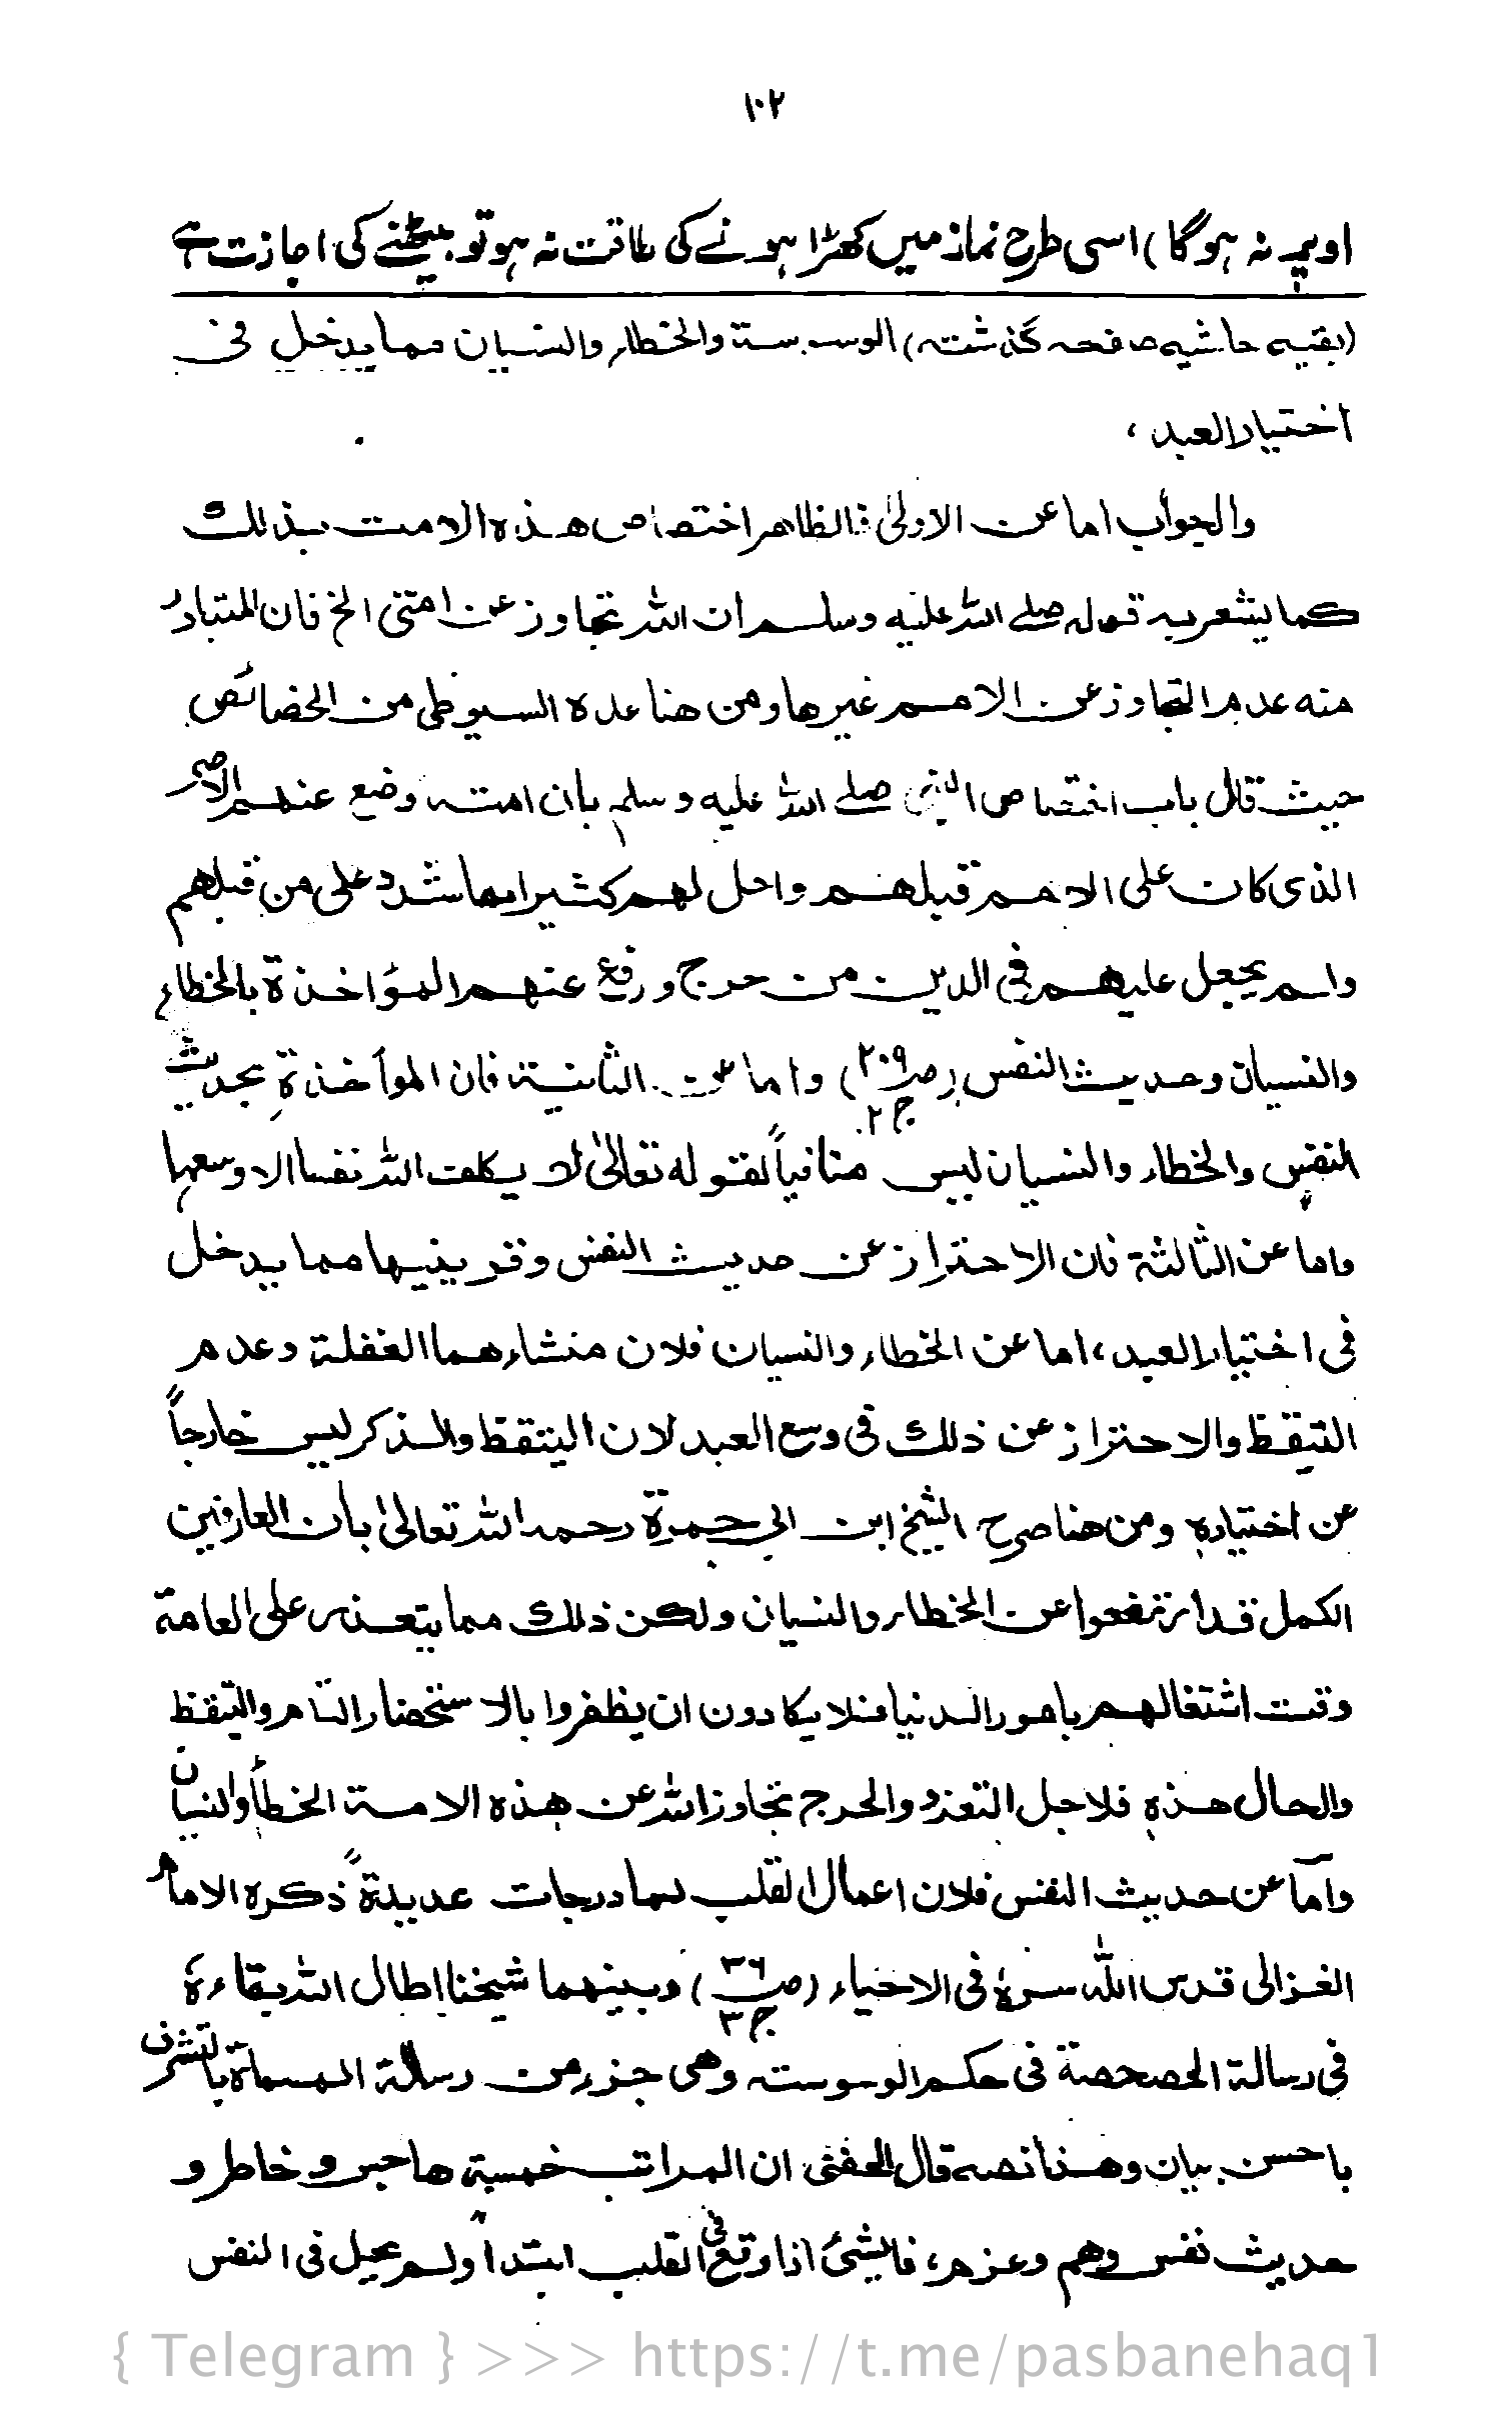 ۱۰۲
اوپر نہ ہوگا) اسی طرح نماز میں کھڑا ہونے کی طاقت نہ ہو تو بیٹھنے کی اجازت ہے
(بقیہ حاشیہ صفحہ گذشتہ) الوسوسة والخطاء والنسیان مما یدخل فی
اختیار العبد،
والجواب اما عن الاولیٰ فالظاهر اختصاص هذه الامت بذلك
کما یشعر به قوله صلے اللہ علیه وسلم ان اللہ تجاوز عن امتی الخ فان المتبادر
منه عدم التجاوز عن الامم غیرها ومن هنا عده السیوطی من الخصائص
حیث قال باب اختصاص النبی صلے اللہ علیه وسلم بان امته وضع عنهم الاصر
الذی کان علی الامم قبلهم واحل لهم کثیرا مما شدد علی من قبلهم
ولم یجعل علیهم فی الدین من حرج ورفع عنهم المؤاخذة بالخطاء
والنسیان وحدیث النفس (ص۲۰۹ ج۲) واما عن الثانیة فان المواٴخذة بحدیث
النفس والخطاء والنسیان لیس منافیاً لقوله تعالیٰ لا یکلف اللہ نفسا الا وسعها
واما عن الثالثة فان الاحتراز عن حدیث النفس وقرینیها مما یدخل
فی اختیار العبد، اما عن الخطاء والنسیان فلان منشاءهما الغفلة وعدم
التیقظ والاحتراز عن ذلك فی وسع العبد لان الیتقظ والذکر لیس خارجاً
عن اختیاره ومن هنا صرح الشیخ ابن ابی جمرة رحمه اللہ تعالیٰ بأن العارفین
الکمل قد ارتفعوا عن الخطاء والنسیان ولکن ذلك مما یتعذر علی العامة
وقت اشتغالهم بامور الدنیا فلا یکادون ان یظفروا بالاستحضار التام والتیقظ
والحال هذه فلاجل التعذر والحرج تجاوز اللہ عن هذه الامة الخطأ والنسیان
واما عن حدیث النفس فلان اعمال القلب لها درجات عدیدة ذکره الامام
الغزالی قدس اللہ سره فی الاحیاء (ص۳۶ ج۳) وبینهما شیخنا اطال اللہ بقاءه
فی رسالة الحصحصة فی حکم الوسوسته وهی جزء من رسالة المسماة بالتشرف
باحسن بیان وهذا نصه قال الحفنی ان المراتب خمسة هاجس وخاطر و
حدیث نفس وهم وعزم، فالشیٔ اذا وقع فی القلب ابتدأ ولم یجل فی النفس
{ Telegram } >>> https://t.me/pasbanehaq1